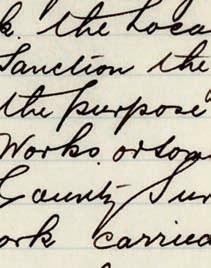 k. the Loca
Sanction the
the purpose
Works. or
County Sur
ork carried